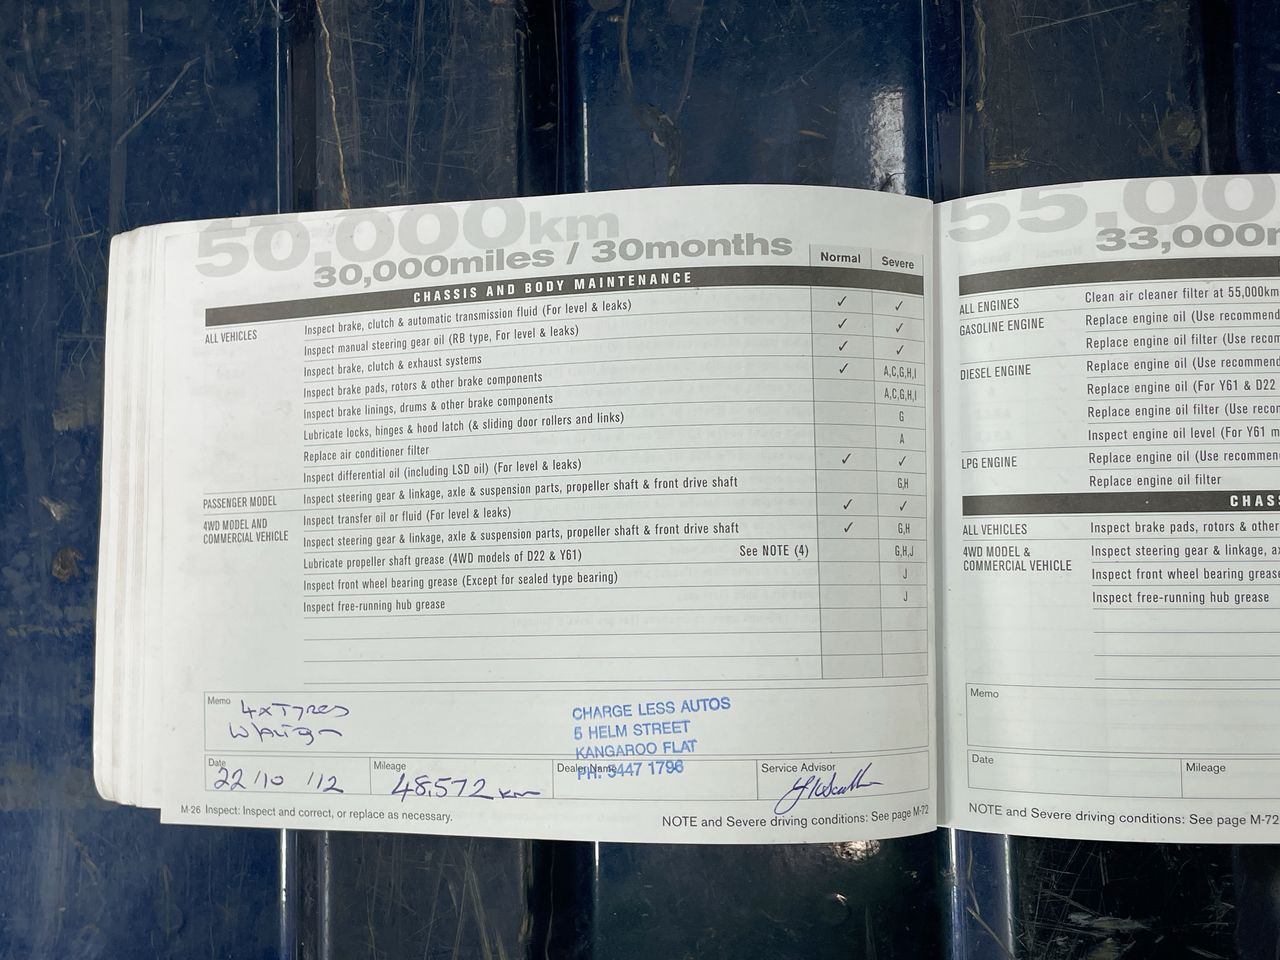 50,000km
30,000miles / 30months
Normal
Severe
CHASSIS AND BODY MAINTENANCE
ALL VEHICLES
Inspect brake, clutch & automatic transmission fluid (For level & leaks) ✓ ✓
Inspect manual steering gear oil (RB type, For level & leaks) ✓ ✓
Inspect brake, clutch & exhaust systems ✓ ✓
Inspect brake pads, rotors & other brake components ✓ A,C,G,H,I
Inspect brake linings, drums & other brake components A,C,G,H,I
Lubricate locks, hinges & hood latch (& sliding door rollers and links) G
Replace air conditioner filter A
Inspect differential oil (including LSD oil) (For level & leaks) ✓ ✓
PASSENGER MODEL
Inspect steering gear & linkage, axle & suspension parts, propeller shaft & front drive shaft G,H
4WD MODEL AND
COMMERCIAL VEHICLE
Inspect transfer oil or fluid (For level & leaks) ✓ ✓
Inspect steering gear & linkage, axle & suspension parts, propeller shaft & front drive shaft ✓ G,H
Lubricate propeller shaft grease (4WD models of D22 & Y61) See NOTE (4) G,H,J
Inspect front wheel bearing grease (Except for sealed type bearing) J
Inspect free-running hub grease J
Memo
4xTyres
W/Align
CHARGE LESS AUTOS
5 HELM STREET
KANGAROO FLAT
PH: 5447 1796
Date
22/10/12
Mileage
48,572 km
Dealer Name
Service Advisor
M-26 Inspect: Inspect and correct, or replace as necessary.
NOTE and Severe driving conditions: See page M-72
55,00
33,000m
ALL ENGINES
Clean air cleaner filter at 55,000km
GASOLINE ENGINE
Replace engine oil (Use recommend
Replace engine oil filter (Use recom
DIESEL ENGINE
Replace engine oil (Use recommend
Replace engine oil (For Y61 & D22
Replace engine oil filter (Use recom
Inspect engine oil level (For Y61 m
LPG ENGINE
Replace engine oil (Use recommen
Replace engine oil filter
CHASS
ALL VEHICLES
Inspect brake pads, rotors & other
4WD MODEL &
COMMERCIAL VEHICLE
Inspect steering gear & linkage, ax
Inspect front wheel bearing grease
Inspect free-running hub grease
Memo
Date
Mileage
NOTE and Severe driving conditions: See page M-72